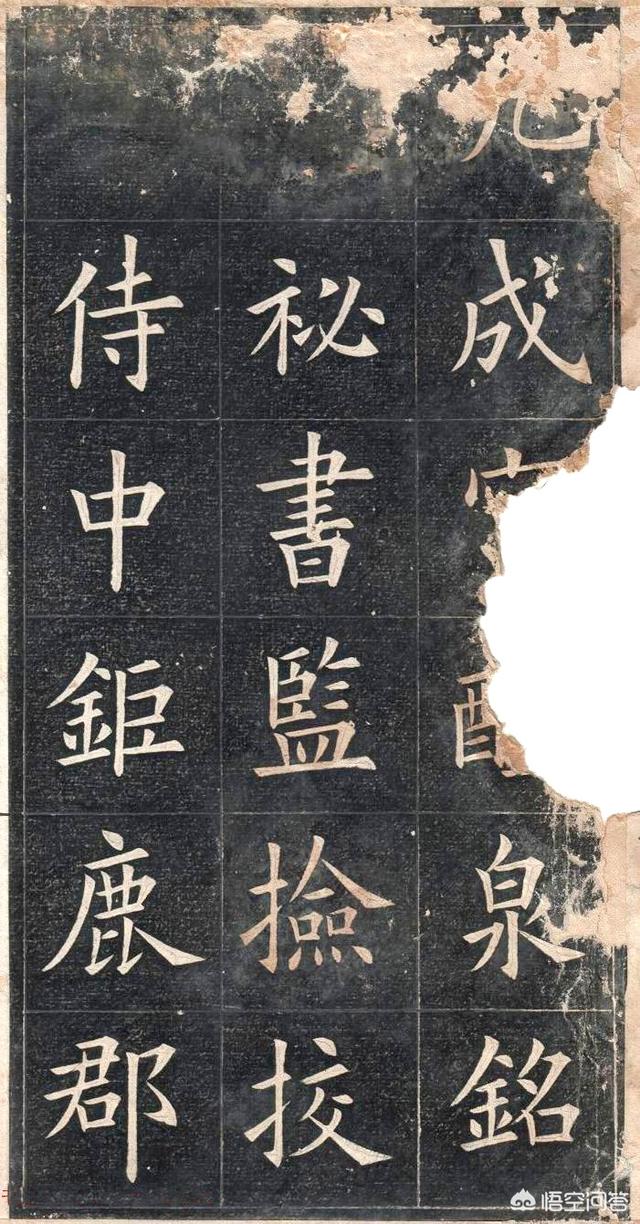 九成泉銘
祕書監撿挍
侍中鉅鹿郡
悟空问答